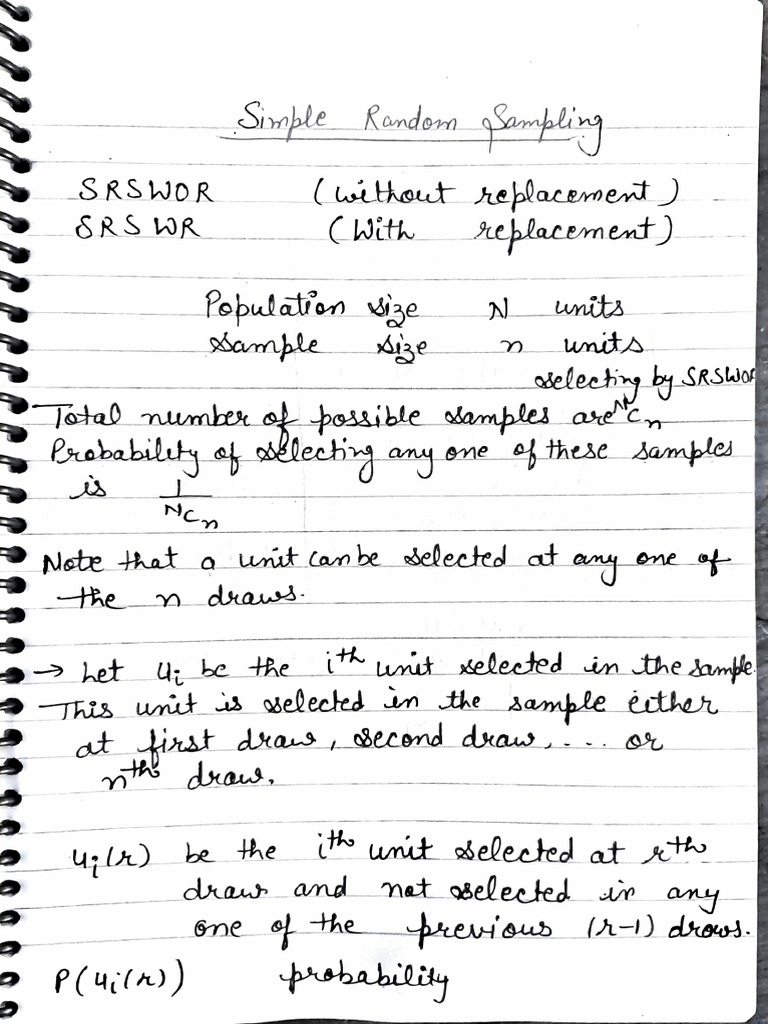 Simple Random Sampling
SRSWOR (without replacement)
SRSWR (With replacement)
Population size N units
Sample size n units
selecting by SRSWOR
Total number of possible samples are ᴺCₙ
Probability of selecting any one of these samples
is 1/ᴺCₙ
Note that a unit can be selected at any one of
the n draws.
→ Let uᵢ be the iᵗʰ unit selected in the sample.
This unit is selected in the sample either
at first draw, second draw, .... or
nᵗʰ draw.
uᵢ(r) be the iᵗʰ unit selected at rᵗʰ
draw and not selected in any
one of the previous (r-1) draws.
P(uᵢ(r)) probability